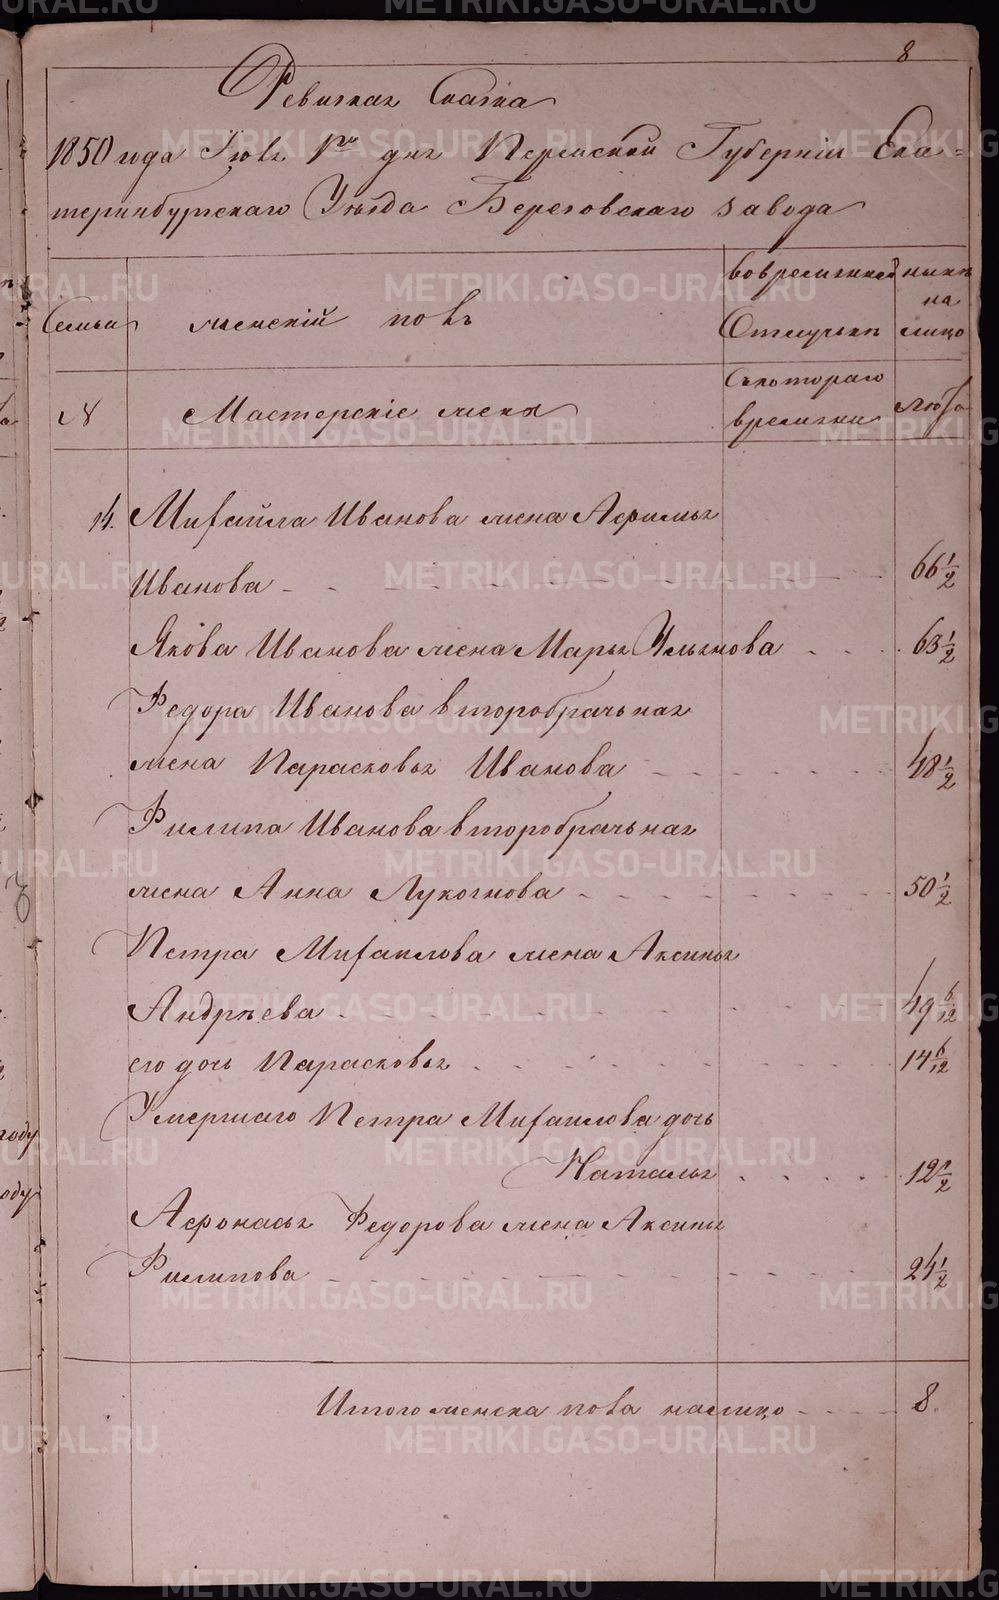 8
Ревизская Сказка
1850 года Июля 1го дня Пермской Губерніи Ека=
теринбургскаго Уѣзда Березовскаго завода
Семьи
женскій полъ
во временной
Отлучкѣ
нынѣ
на
лицо
№
Мастерскіе жены
Съ котораго
времяни
лѣта
14. Михайла Иванова жена Афимья
Иванова - - - - 66 1/2
Якова Иванова жена Марья Ульянова - - 63 1/2
Федора Иванова второбрачьная
жена Парасковья Иванова - - - 48 1/2
Филипа Иванова второбрачьная
жена Анна Лукоянова - - - 50 1/2
Петра Михаилова жена Аксинья
Андрѣева - - - 49 6/12
его дочь Парасковья - - - 14 6/12
Умершаго Петра Михаилова дочь
Наталья - - - 12 1/2
Афонасья Федорова жена Аксинья
Филипова - - - 24 1/2
Итого женска пола налицо - - - 8.
METRIKI.GASO-URAL.RU